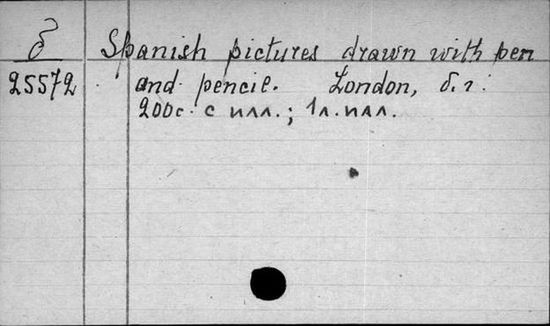 δ Spanish pictures drawn with pen
25572 and pencil. London, б.г.
200с. с илл.; 1л. илл.